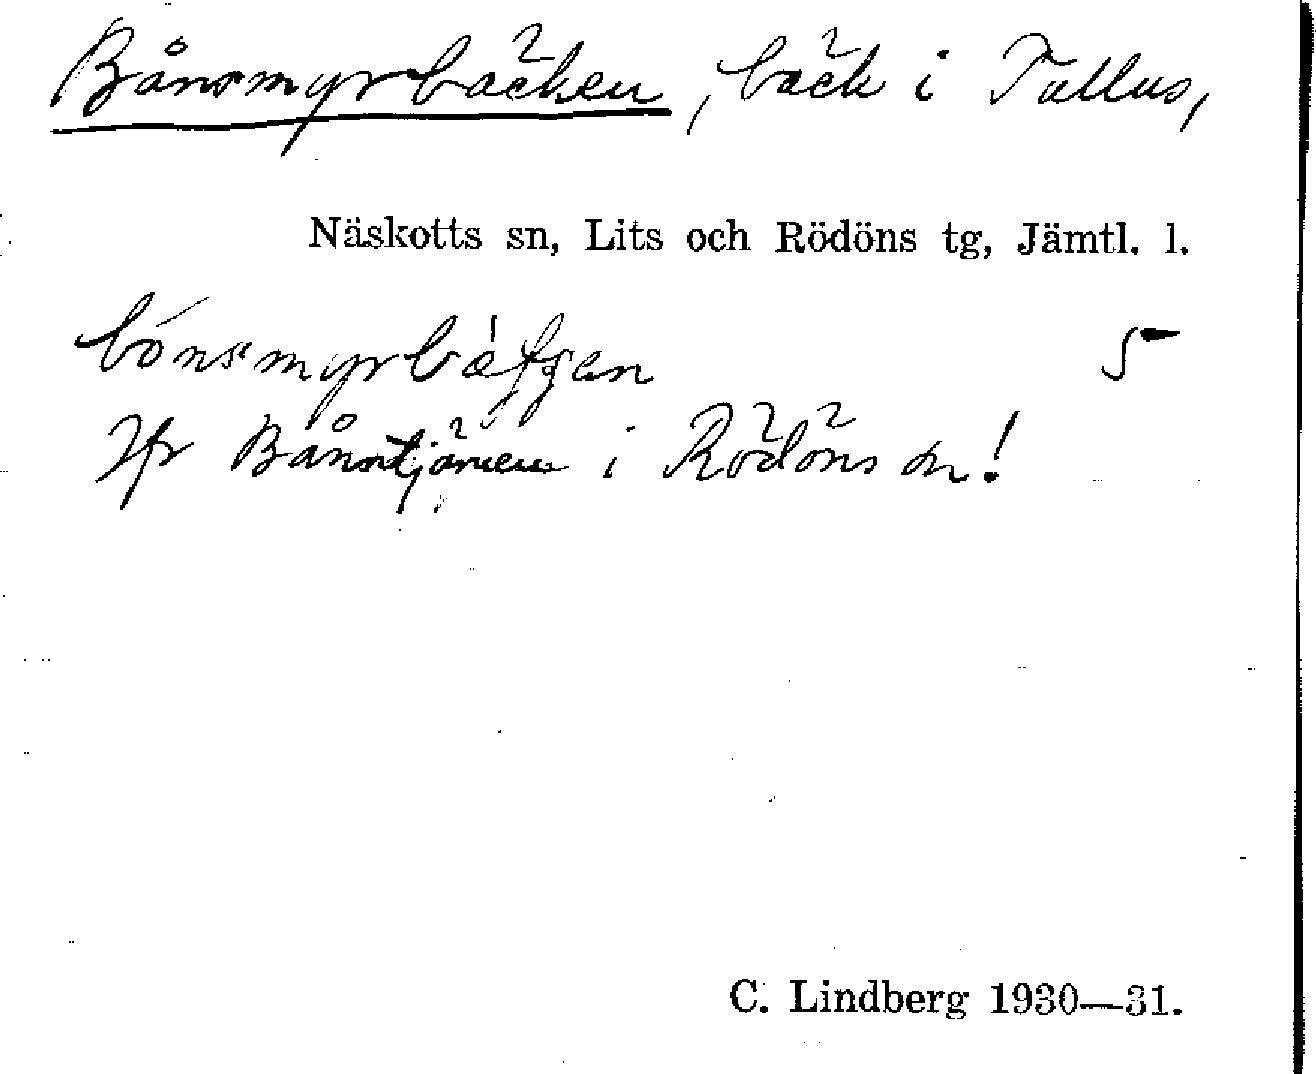 Bånsmyrbäcken, bäck i Tullus,
Näskotts sn, Lits och Rödöns tg, Jämtl. l.
bónsmyrbàƫʃen 5
Jfr Bånstjärnen i Rödöns sn!
C. Lindberg 1930—31.